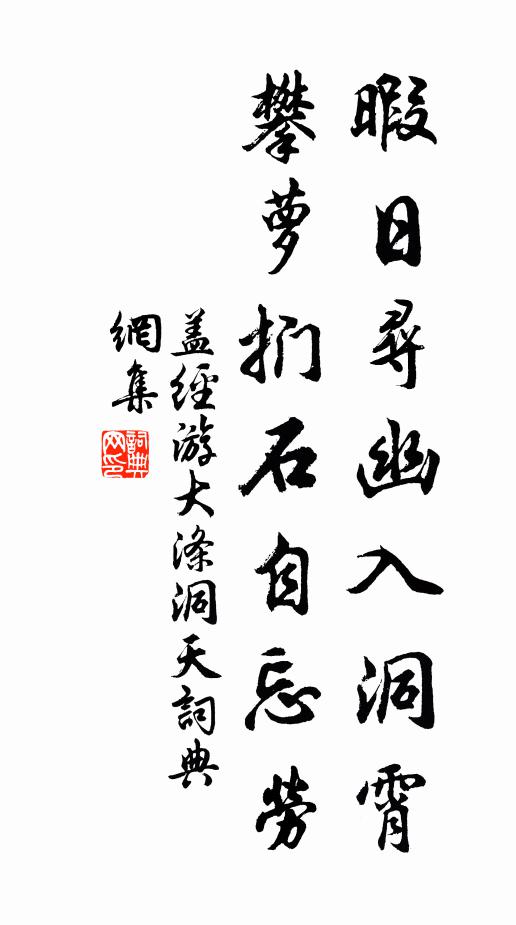 暇日尋幽入洞霄
攀萝捫石自忘勞
盖經游大滌洞天詞典
網集
詞典网印